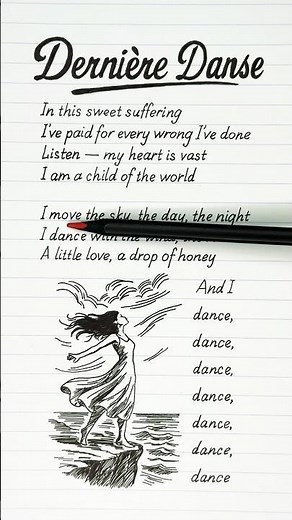 Dernière Danse
In this sweet suffering
I've paid for every wrong I've done
Listen — my heart is vast
I am a child of the world
I move the sky, the day, the night
I dance with the wind, the
A little love, a drop of honey
And I
dance,
dance,
dance,
dance,
dance,
dance,
dance